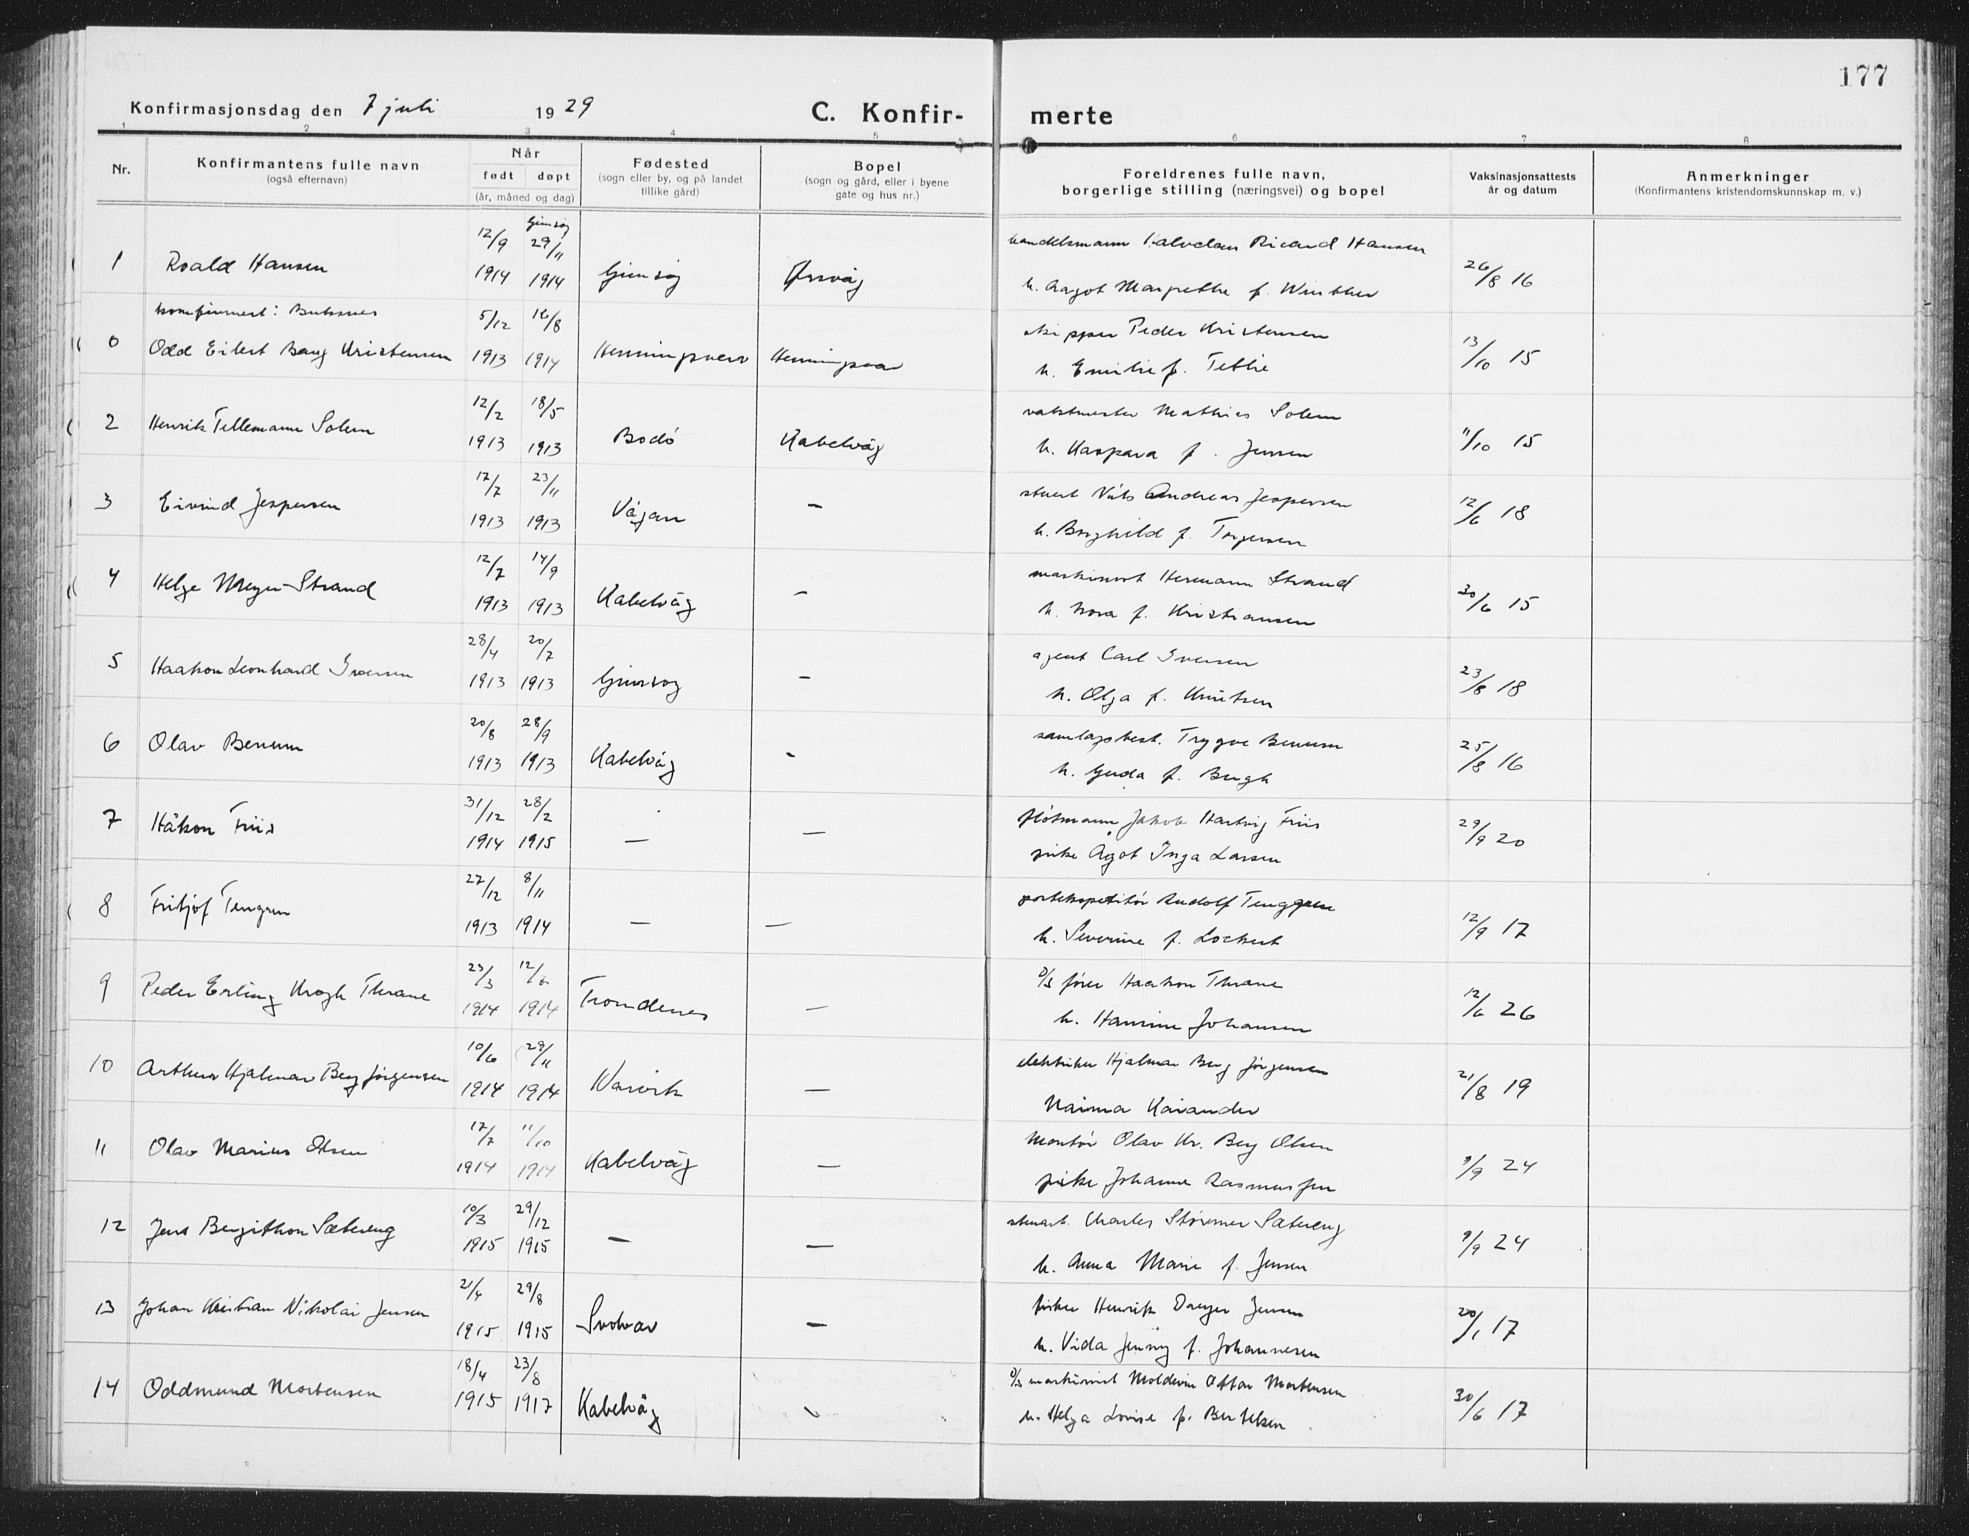 177
Konfirmasjonsdag den 7 juli 1929 C. Konfir- merte
1 2 3 4 5 6 7 8
Nr. Konfirmantens fulle navn (også efternavn) Når født døpt (år, måned og dag) Fødested (sogn eller by, og på landet tillike gård) Bopel (sogn og gård, eller i byene gate og hus nr.) Foreldrenes fulle navn, borgerlige stilling (næringsvei) og bopel Vaksinasjonsattests år og datum Anmerkninger (Konfirmantens kristendomskunnskap m. v.)
12/9 Gimsøy 29/11 handelsmann Ricard Hansen
1 Roald Hansen 1914 1914 Gimsøy Ørsvåg h. Aagot Margrethe f. Winther 26/8 16
konfirmert i Buksnes 5/12 16/8 skipper Peder Kristensen
0 Odd Eilert Bang Kristensen 1913 1914 Henningsvær Henningsvær h. Emilie f. 13/10 15
12/2 18/5 vaktmester Mathias Solem
2 Henrik Tellemann Solem 1913 1913 Bodö Kabelvåg h. Kaspara f. Jensen 11/10 15
17/7 23/11 stuert Nils Andreas Jespersen
3 Eivind Jespersen 1913 1913 Vågan — h. Borghild f. Torgersen 12/6 18
12/7 14/9 maskinist Hermann Strand
4 Helge Meyer Strand 1913 1913 Kabelvåg — h. Nora f. Kristiansen 30/6 15
28/4 20/7 agent Carl Iversen
5 Haakon Leonhard Iversen 1913 1913 Gimsøy — h. Olga f. Knutsen 23/8 18
20/8 28/9 samlagsbest. Trygve Benum
6 Olav Benum 1913 1913 Kabelvåg — h. Gerda f. Bergh 25/8 16
31/12 28/2 fløtmann Jakob Hartvig Friis
7 Håkon Friis 1914 1915 — — pike Ågot Inga Larsen 29/9 20
27/12 8/11 Rudolf Tenggren
8 Fritjof Tengren 1913 1914 — — h. Severine f. Lockert 12/9 17
23/3 12/6 D/S fører Haakon Thrane
9 Peder Erling Krogh Thrane 1914 1914 Trondenes — h. Hansine Johansen 12/6 26
10/6 29/11 elektriker Hjalmar Berg Jørgensen
10 Arthur Hjalmar Berg Jørgensen 1914 1914 Narvik — Naima Kaiander 21/8 19
17/7 11/10 Montör Olav Kr. Berg Olsen
11 Olav Marius Olsen 1914 1914 Kabelvåg — pike Johanne Rasmussen 9/9 24
10/3 29/12 stuert. Charles Størmer Sætereng
12 Jens Bergithon Sætereng 1915 1915 — — h. Anna Marie f. Jensen 9/9 24
21/4 29/8 fisker Henrik Dreyer Jensen
13 Johan Kristian Nikolai Jensen 1915 1915 Svolvær — h. Vida Jenny f. Johannesen 20/1 17
18/4 23/8 D/S maskinist Moldevin Ottar Mortensen
14 Oddmund Mortensen 1915 1917 Kabelvåg — h. Helga Lovise f. Bertelsen 30/6 17